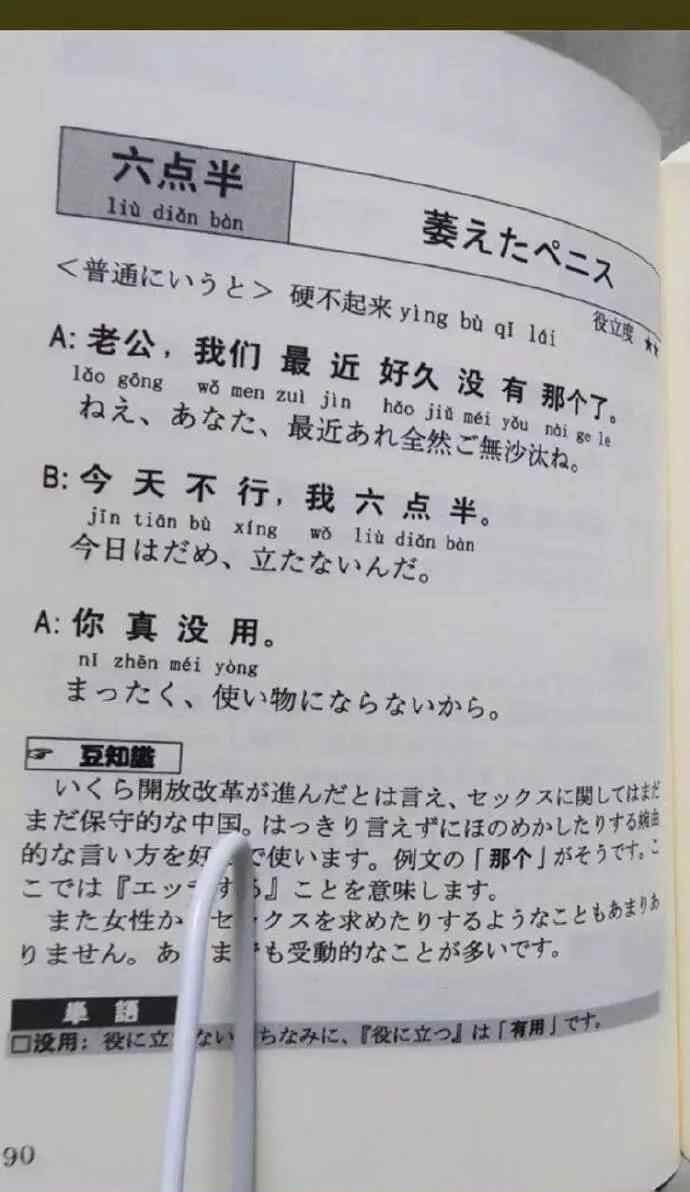 六点半
liù diǎn bàn
萎えたペニス
＜普通にいうと＞ 硬不起来 yìng bù qǐ lái
役立度 ★★
A: 老公，我们 最 近 好久 没 有 那个了。
lǎo gōng wǒ men zuì jìn hǎo jiǔ méi yǒu nài ge le
ねえ、あなた、最近あれ全然ご無沙汰ね。
B: 今 天 不 行，我 六 点 半。
jīn tiān bù xíng wǒ liù diǎn bàn
今日はだめ、立たないんだ。
A: 你 真 没 用。
nǐ zhēn méi yòng
まったく、使い物にならないから。
☞ 豆知識
いくら開放改革が進んだとは言え、セックスに関してはまだ
まだ保守的な中国。はっきり言えずにほのめかしたりする婉曲
的な言い方を好 で使います。例文の「那个」がそうです。こ
こでは『エッチする』ことを意味します。
また女性か セックスを求めたりするようなこともあまりあ
りません。あ ま も受動的なことが多いです。
単 語
□没用：役に立 ない ちなみに、『役に立つ』は「有用」です。
90